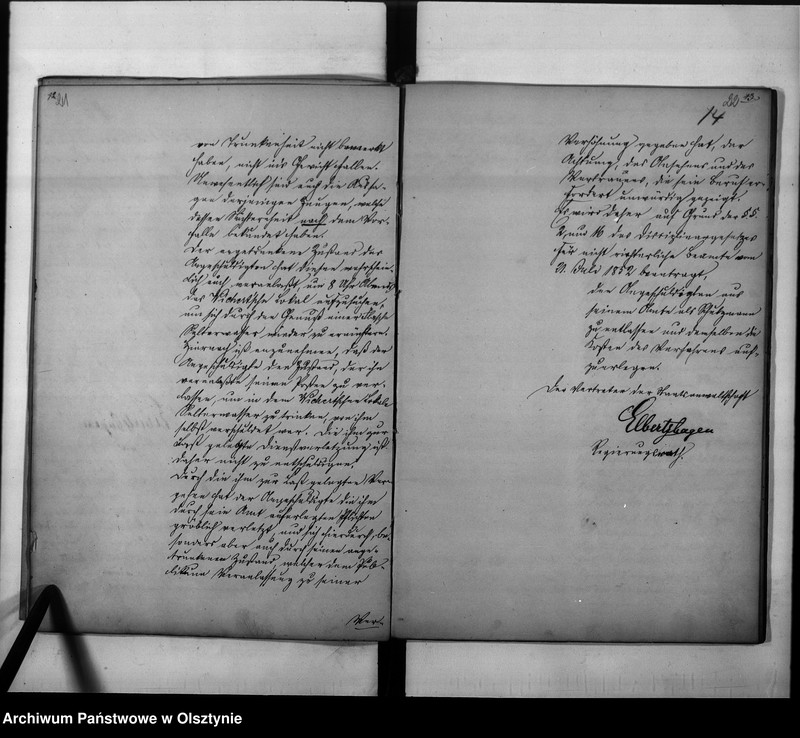 12
21
von Trunkenheit nicht bemerkt
haben, nicht ins Gewicht fallen.
Unwesentlich sind auch die Aussa-
gen derjenigen Zeugen, welche
dessen Nüchternheit nach dem Vor-
falle bekundet haben.
Der angetrunkene Zustand des
Angeschuldigten hat diesen wahrschein-
lich auch veranlaßt um 8 Uhr Abends
das Lokal aufzusuchen,
um sich durch den Genuß einer Flasche
Selterwasser wieder zu ernüchtern.
Hiernach ist anzunehmen, daß der
Angeschuldigte den Zustand, der ihn
veranlaßte seinen Posten zu ver-
lassen, um in dem Lokale
Selterwasser zu trinken, von ihm
selbst verschuldet war. Die ihm zur
Last gelegte Dienstverletzung ist
daher nicht zu entschuldigen.
Durch die ihm zur Last gelegten Ver-
gehen hat der Angeschuldigte die ihm
durch sein Amt auferlegten Pflichten
gröblich verletzt und sich hierdurch, be-
sonders aber auch durch seinen ange-
trunkenen Zustand, welcher dem Pub-
likum Veranlassung zu seiner
Ver-
22
13
14
Verhöhnung gegeben hat, der
Achtung, des Ansehens und des
Vertrauens, die sein Beruf er-
fordert unwürdig gezeigt.
Es wird daher auf Grund der §§.
2 und 16 des Disciplinargesetzes
für nicht richterliche Beamte vom
21. Juli 1852 beantragt,
den Angeschuldigten aus
seinem Amte als Schutzmann
zu entlassen und demselben die
Kosten des Verfahrens auf-
zuerlegen.
Der Vertreter der Staatsanwaltschaft
Elbertzhagen
Regierungsrath.
Archiwum Państwowe w Olsztynie